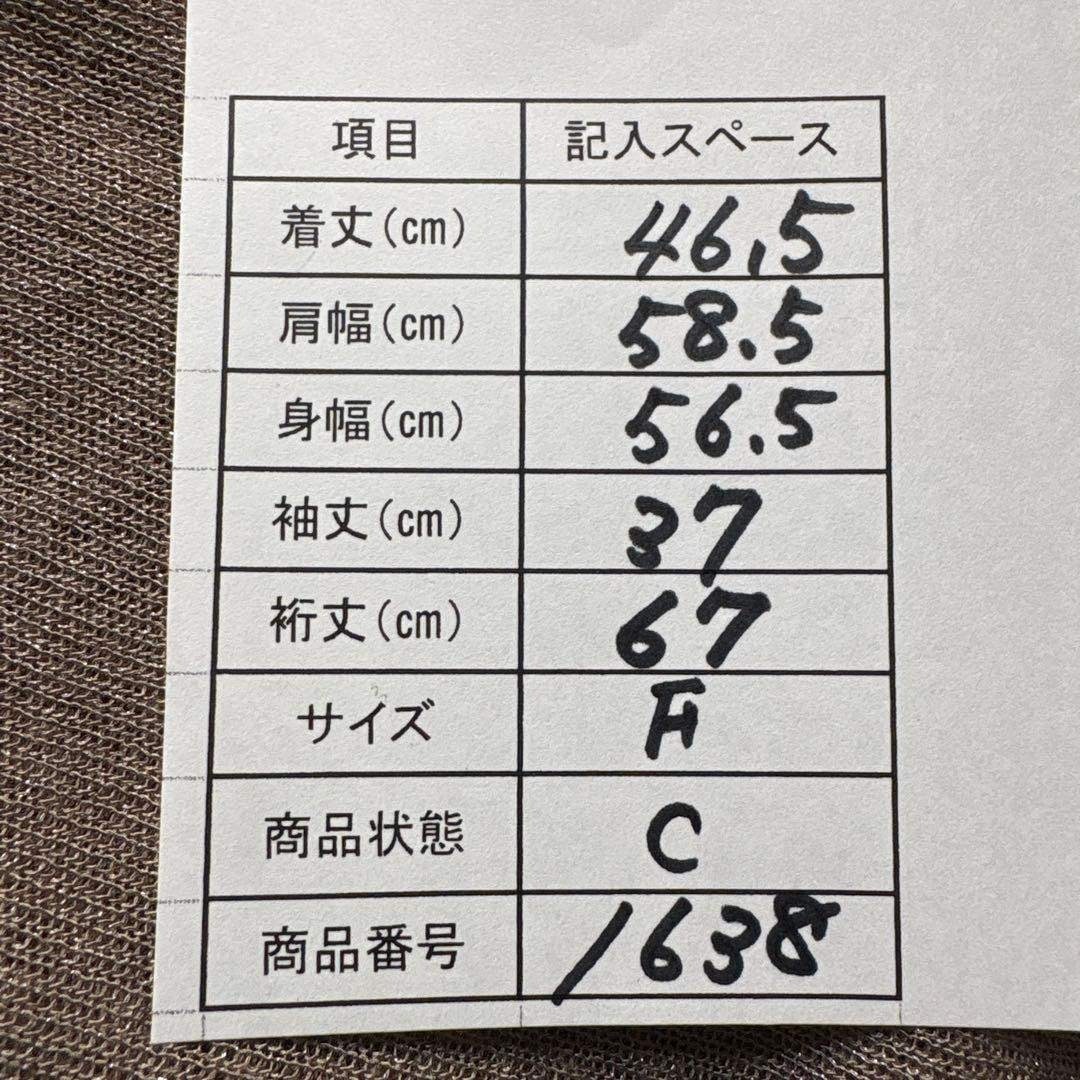 項目 記入スペース
着丈(cm) 46.5
肩幅(cm) 58.5
身幅(cm) 56.5
袖丈(cm) 37
裄丈(cm) 67
サイズ F
商品状態 C
商品番号 1638